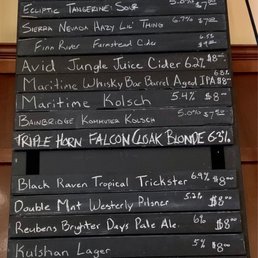 Ecliptic Tangerine Sour 5.0% $7.00
Sierra Nevada Hazy Lil' Thing 6.7% $7.00
Finn River Farmstead Cider 6.5% $9.00
Avid Jungle Juice Cider 6.2% $8.00
Maritime Whisky Bar Barrel Aged IPA 6.8% $8.00
Maritime Kolsch 5.4% $8.00
Bainbridge Kommuter Kolsch 5.0% $7.00
TRIPLE HORN FALCON CLOAK BLONDE 6.3%
Black Raven Tropical Trickster 6.9% $8.00
Double Mnt Westerly Pilsner 5.2% $8.00
Reubens Bryghter Days Pale Ale 6% $8.00
Kulshan Lager 5% $8.00